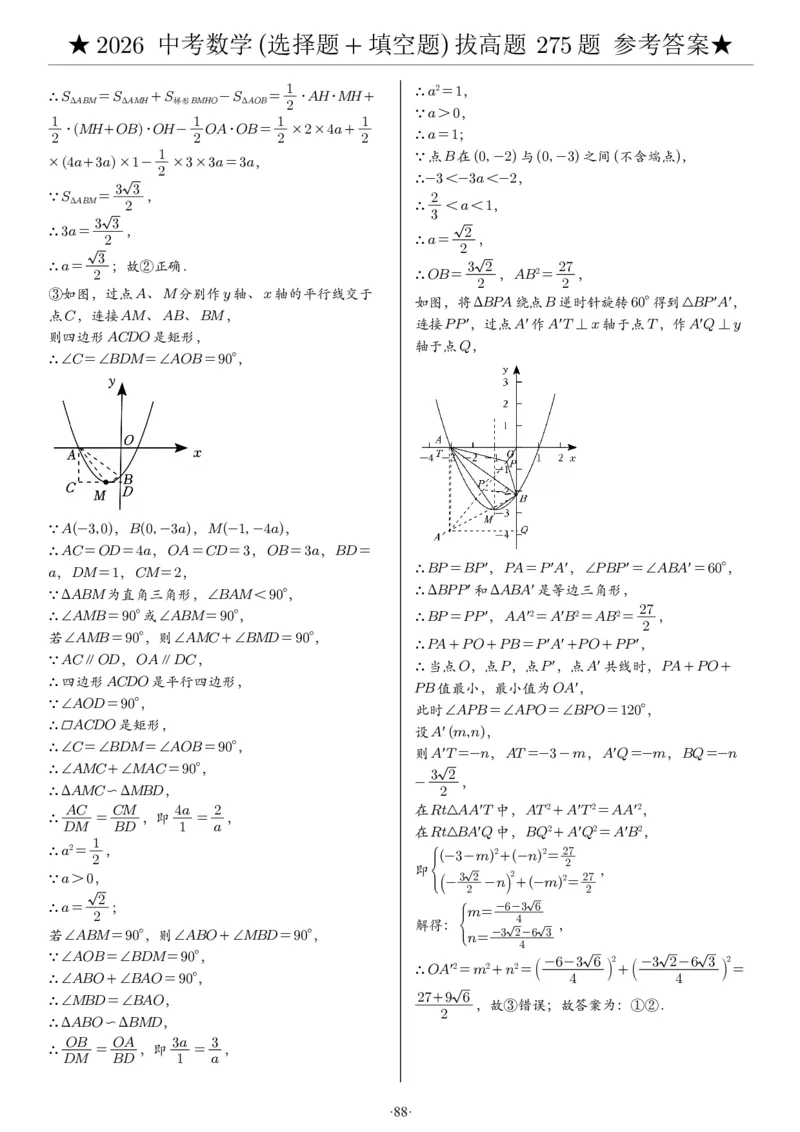 ★2026 中考数学(选择题+填空题)拔高题 275题 参考答案★
∴S△ABM=S△AMH+S梯形BMHO−S△AOB=1/2·AH·MH+
1/2·(MH+OB)·OH−1/2OA·OB=1/2×2×4a+1/2
×(4a+3a)×1−1/2×3×3a=3a,
∵S△ABM=3√3/2,
∴3a=3√3/2,
∴a=√3/2;故②正确.
③如图,过点A、M分别作y轴、x轴的平行线交于
点C,连接AM、AB、BM,
则四边形ACDO是矩形,
∴∠C=∠BDM=∠AOB=90°,
y
O
A
x
B
C
M
D
∵A(−3,0),B(0,−3a),M(−1,−4a),
∴AC=OD=4a,OA=CD=3,OB=3a,BD=
a,DM=1,CM=2,
∵ΔABM为直角三角形,∠BAM<90°,
∴∠AMB=90°或∠ABM=90°,
若∠AMB=90°,则∠AMC+∠BMD=90°,
∵AC∥OD,OA∥DC,
∴四边形ACDO是平行四边形,
∵∠AOD=90°,
∴□ACDO是矩形,
∴∠C=∠BDM=∠AOB=90°,
∴∠AMC+∠MAC=90°,
∴ΔAMC∽ΔMBD,
∴AC/DM=CM/BD,即4a/1=2/a,
∴a²=1/2,
∵a>0,
∴a=√2/2;
若∠ABM=90°,则∠ABO+∠MBD=90°,
∵∠AOB=∠BDM=90°,
∴∠ABO+∠BAO=90°,
∴∠MBD=∠BAO,
∴ΔABO∽ΔBMD,
∴OB/DM=OA/BD,即3a/1=3/a,
∴a²=1,
∵a>0,
∴a=1;
∵点B在(0,−2)与(0,−3)之间(不含端点),
∴−3<−3a<−2,
∴2/3<a<1,
∴a=√2/2,
∴OB=3√2/2,AB²=27/2,
如图,将ΔBPA绕点B逆时针旋转60°得到△BP′A′,
连接PP′,过点A′作A′T⊥x轴于点T,作A′Q⊥y
轴于点Q,
y
3
2
1
A
O
−4 T −3 −2 −1 P 1 2 x
−1
P′
−2
B
−3
M
−4
Q
A′
∴BP=BP′,PA=P′A′,∠PBP′=∠ABA′=60°,
∴ΔBPP′和ΔABA′是等边三角形,
∴BP=PP′,AA′²=A′B²=AB²=27/2,
∴PA+PO+PB=P′A′+PO+PP′,
∴当点O,点P,点P′,点A′共线时,PA+PO+
PB值最小,最小值为OA′,
此时∠APB=∠APO=∠BPO=120°,
设A′(m,n),
则A′T=−n,AT=−3−m,A′Q=−m,BQ=−n
−3√2/2,
在Rt△AA′T中,AT²+A′T²=AA′²,
在Rt△BA′Q中,BQ²+A′Q²=A′B²,
即{(−3−m)²+(−n)²=27/2
(−3√2/2−n)²+(−m)²=27/2,
解得:{m=(−6−3√6)/4
n=(−3√2−6√3)/4,
∴OA′²=m²+n²=((−6−3√6)/4)²+((−3√2−6√3)/4)²=
(27+9√6)/2,故③错误;故答案为:①②.
·88·